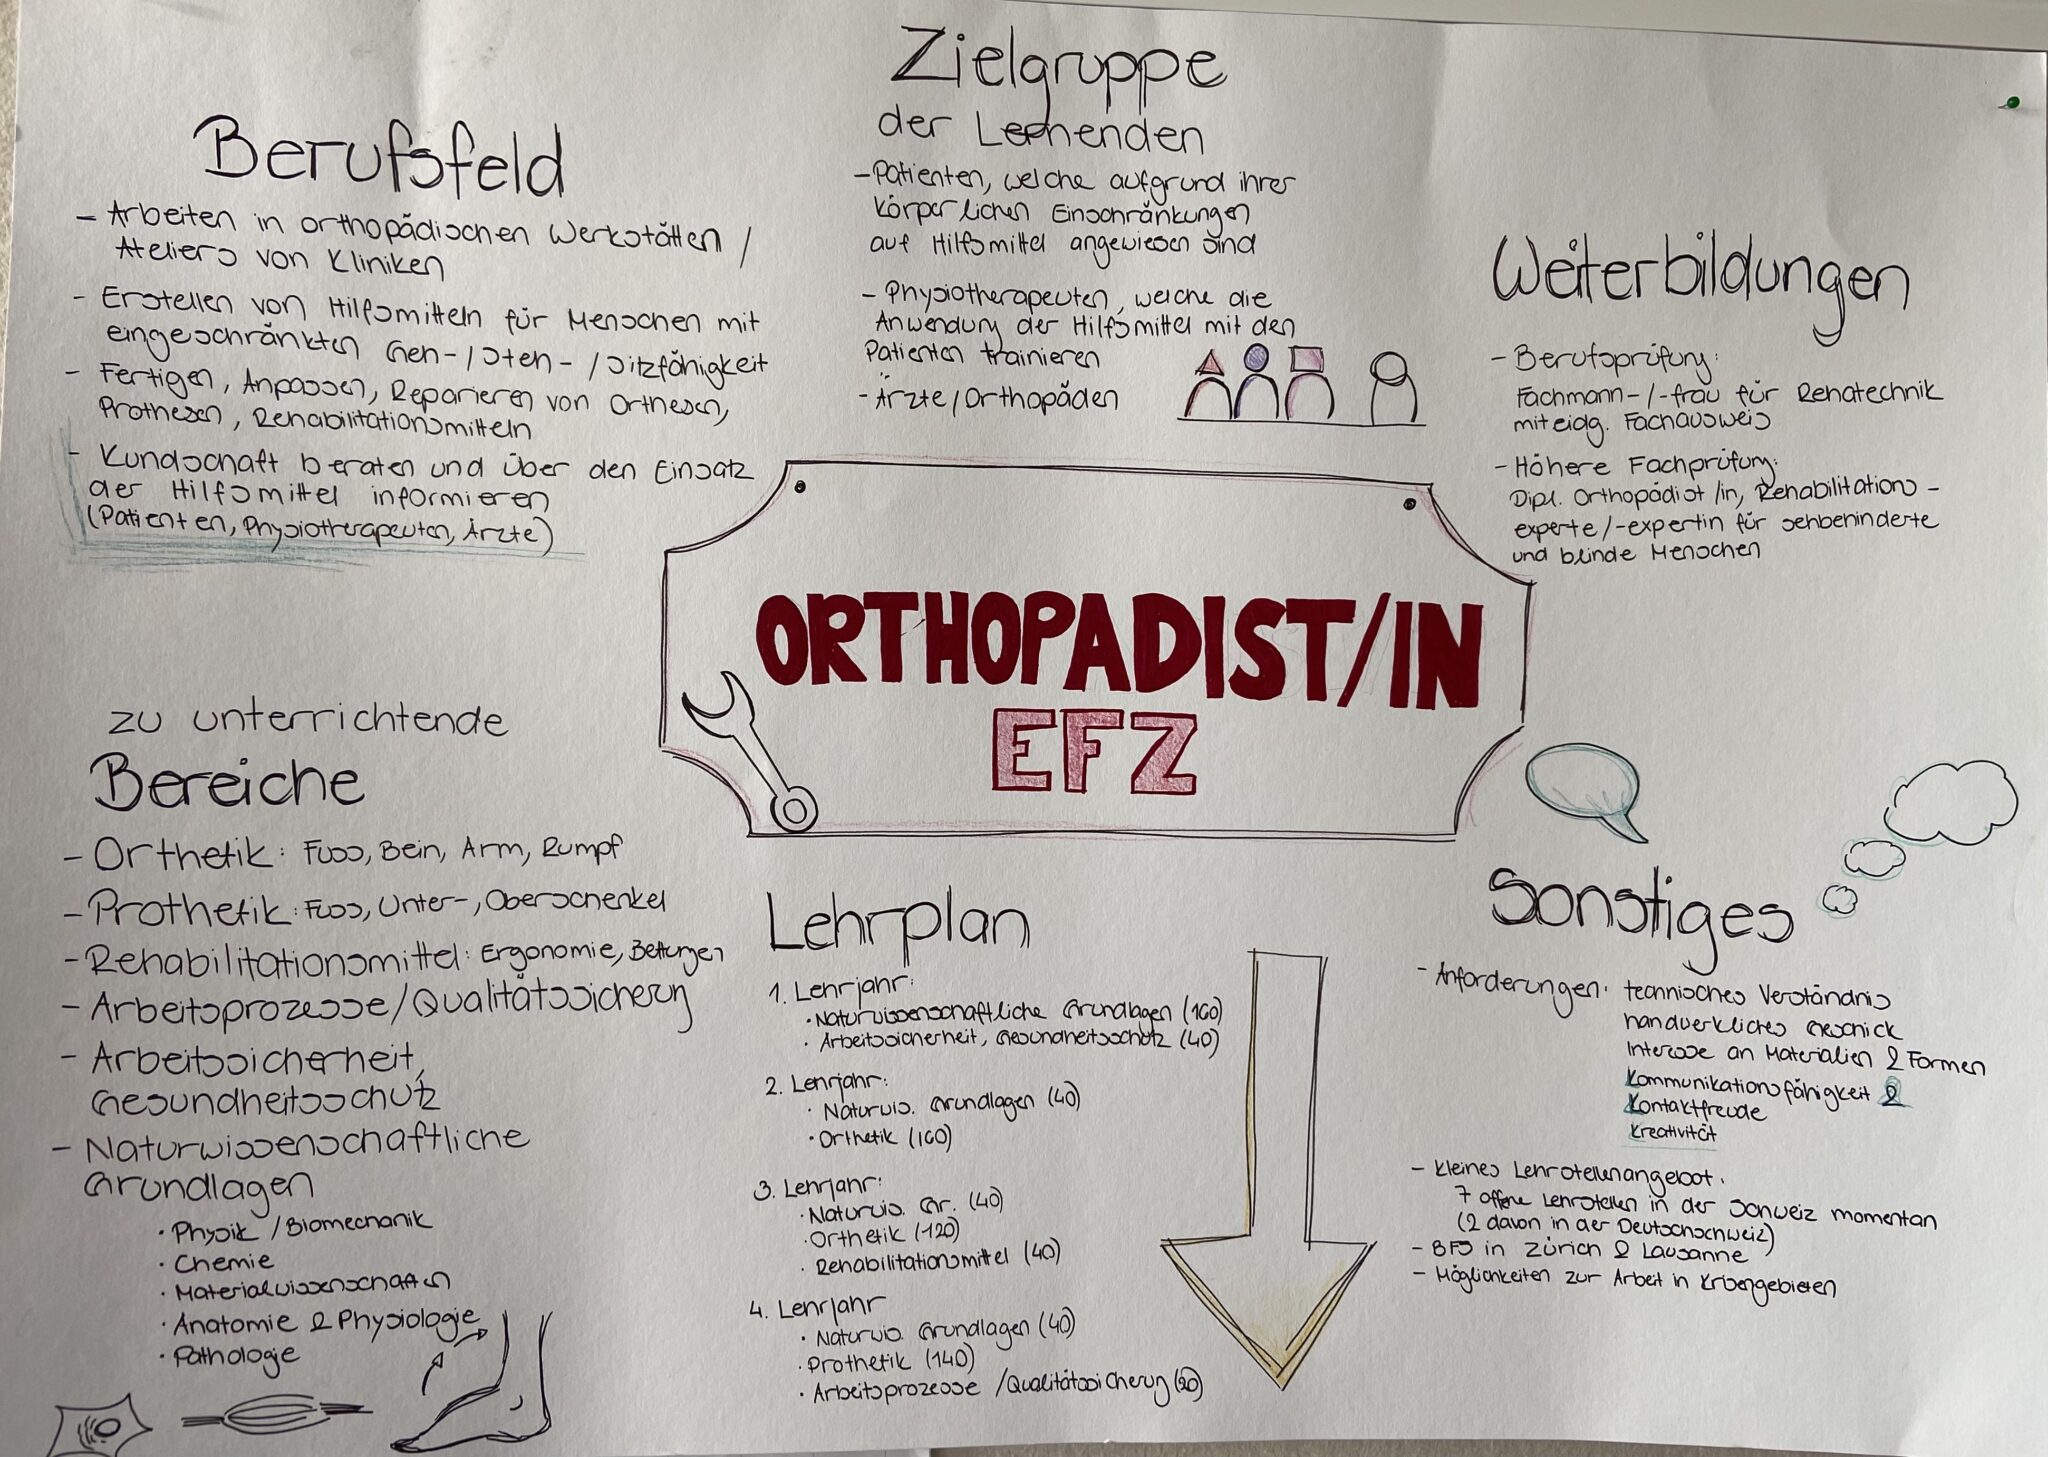 Zielgruppe
der Lernenden
- Patienten, welche aufgrund ihrer
körperlichen Einschränkungen
auf Hilfsmittel angewiesen sind
- Physiotherapeuten, welche die
Anwendung der Hilfsmittel mit den
Patienten trainieren
- Ärzte/Orthopäden
Berufsfeld
- Arbeiten in orthopädischen Werkstätten /
Ateliers von Kliniken
- Erstellen von Hilfsmitteln für Menschen mit
eingeschränkten Geh-/Steh-/Sitzfähigkeit
- Fertigen, Anpassen, Reparieren von Orthesen,
Prothesen, Rehabilitationsmitteln
- Kundschaft beraten und über den Einsatz
der Hilfsmittel informieren
(Patienten, Physiotherapeuten, Ärzte)
Weiterbildungen
- Berufsprüfung:
Fachmann-/-frau für Rehatechnik
mit eidg. Fachausweis
- Höhere Fachprüfung:
Dipl. Orthopädist/in, Rehabilitations-
experte/-expertin für sehbehinderte
und blinde Menschen
ORTHOPADIST/IN
EFZ
zu unterrichtende
Bereiche
- Orthetik: Fuss, Bein, Arm, Rumpf
- Prothetik: Fuss, Unter-, Oberschenkel
- Rehabilitationsmittel: Ergonomie, Bettungen
- Arbeitsprozesse/Qualitätssicherung
- Arbeitssicherheit,
Gesundheitsschutz
- Naturwissenschaftliche
Grundlagen
· Physik / Biomechanik
· Chemie
· Materialwissenschaften
· Anatomie & Physiologie
· Pathologie
Lehrplan
1. Lehrjahr:
· Naturwissenschaftliche Grundlagen (160)
· Arbeitssicherheit, Gesundheitsschutz (40)
2. Lehrjahr:
· Naturwis. Grundlagen (40)
· Orthetik (160)
3. Lehrjahr:
· Naturwis. Gr. (40)
· Orthetik (120)
· Rehabilitationsmittel (40)
4. Lehrjahr
· Naturwis. Grundlagen (40)
· Prothetik (140)
· Arbeitsprozesse /Qualitätssicherung (20)
Sonstiges
- Anforderungen: technisches Verständnis
handwerkliches Geschick
Interesse an Materialien & Formen
Kommunikationsfähigkeit &
Kontaktfreude
Kreativität
- Kleines Lehrstellenangebot:
7 offene Lehrstellen in der Schweiz momentan
(2 davon in der Deutschschweiz)
- BFS in Zürich & Lausanne
- Möglichkeiten zur Arbeit in Krisengebieten